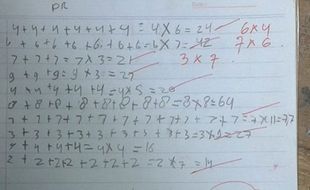 PR
4+4+4+4+4+4 = 4x6=24 6x4
6+6+6+6+6+6=6x7=42 7x6
7+7+7=7x3=21 3x7
9+9+9=9x3=27
4+4+4+4+4=4x5=20
8+8+8+8+8+8+8=8x8=64
7+7+7+7+7+7+7+7+7+7+7=7x11=77
3+3+3+3+3+3+3+3+3=3x9=27
4+4+4+4=4x4=16
2+2+2+2+2+2+2=2x7=14